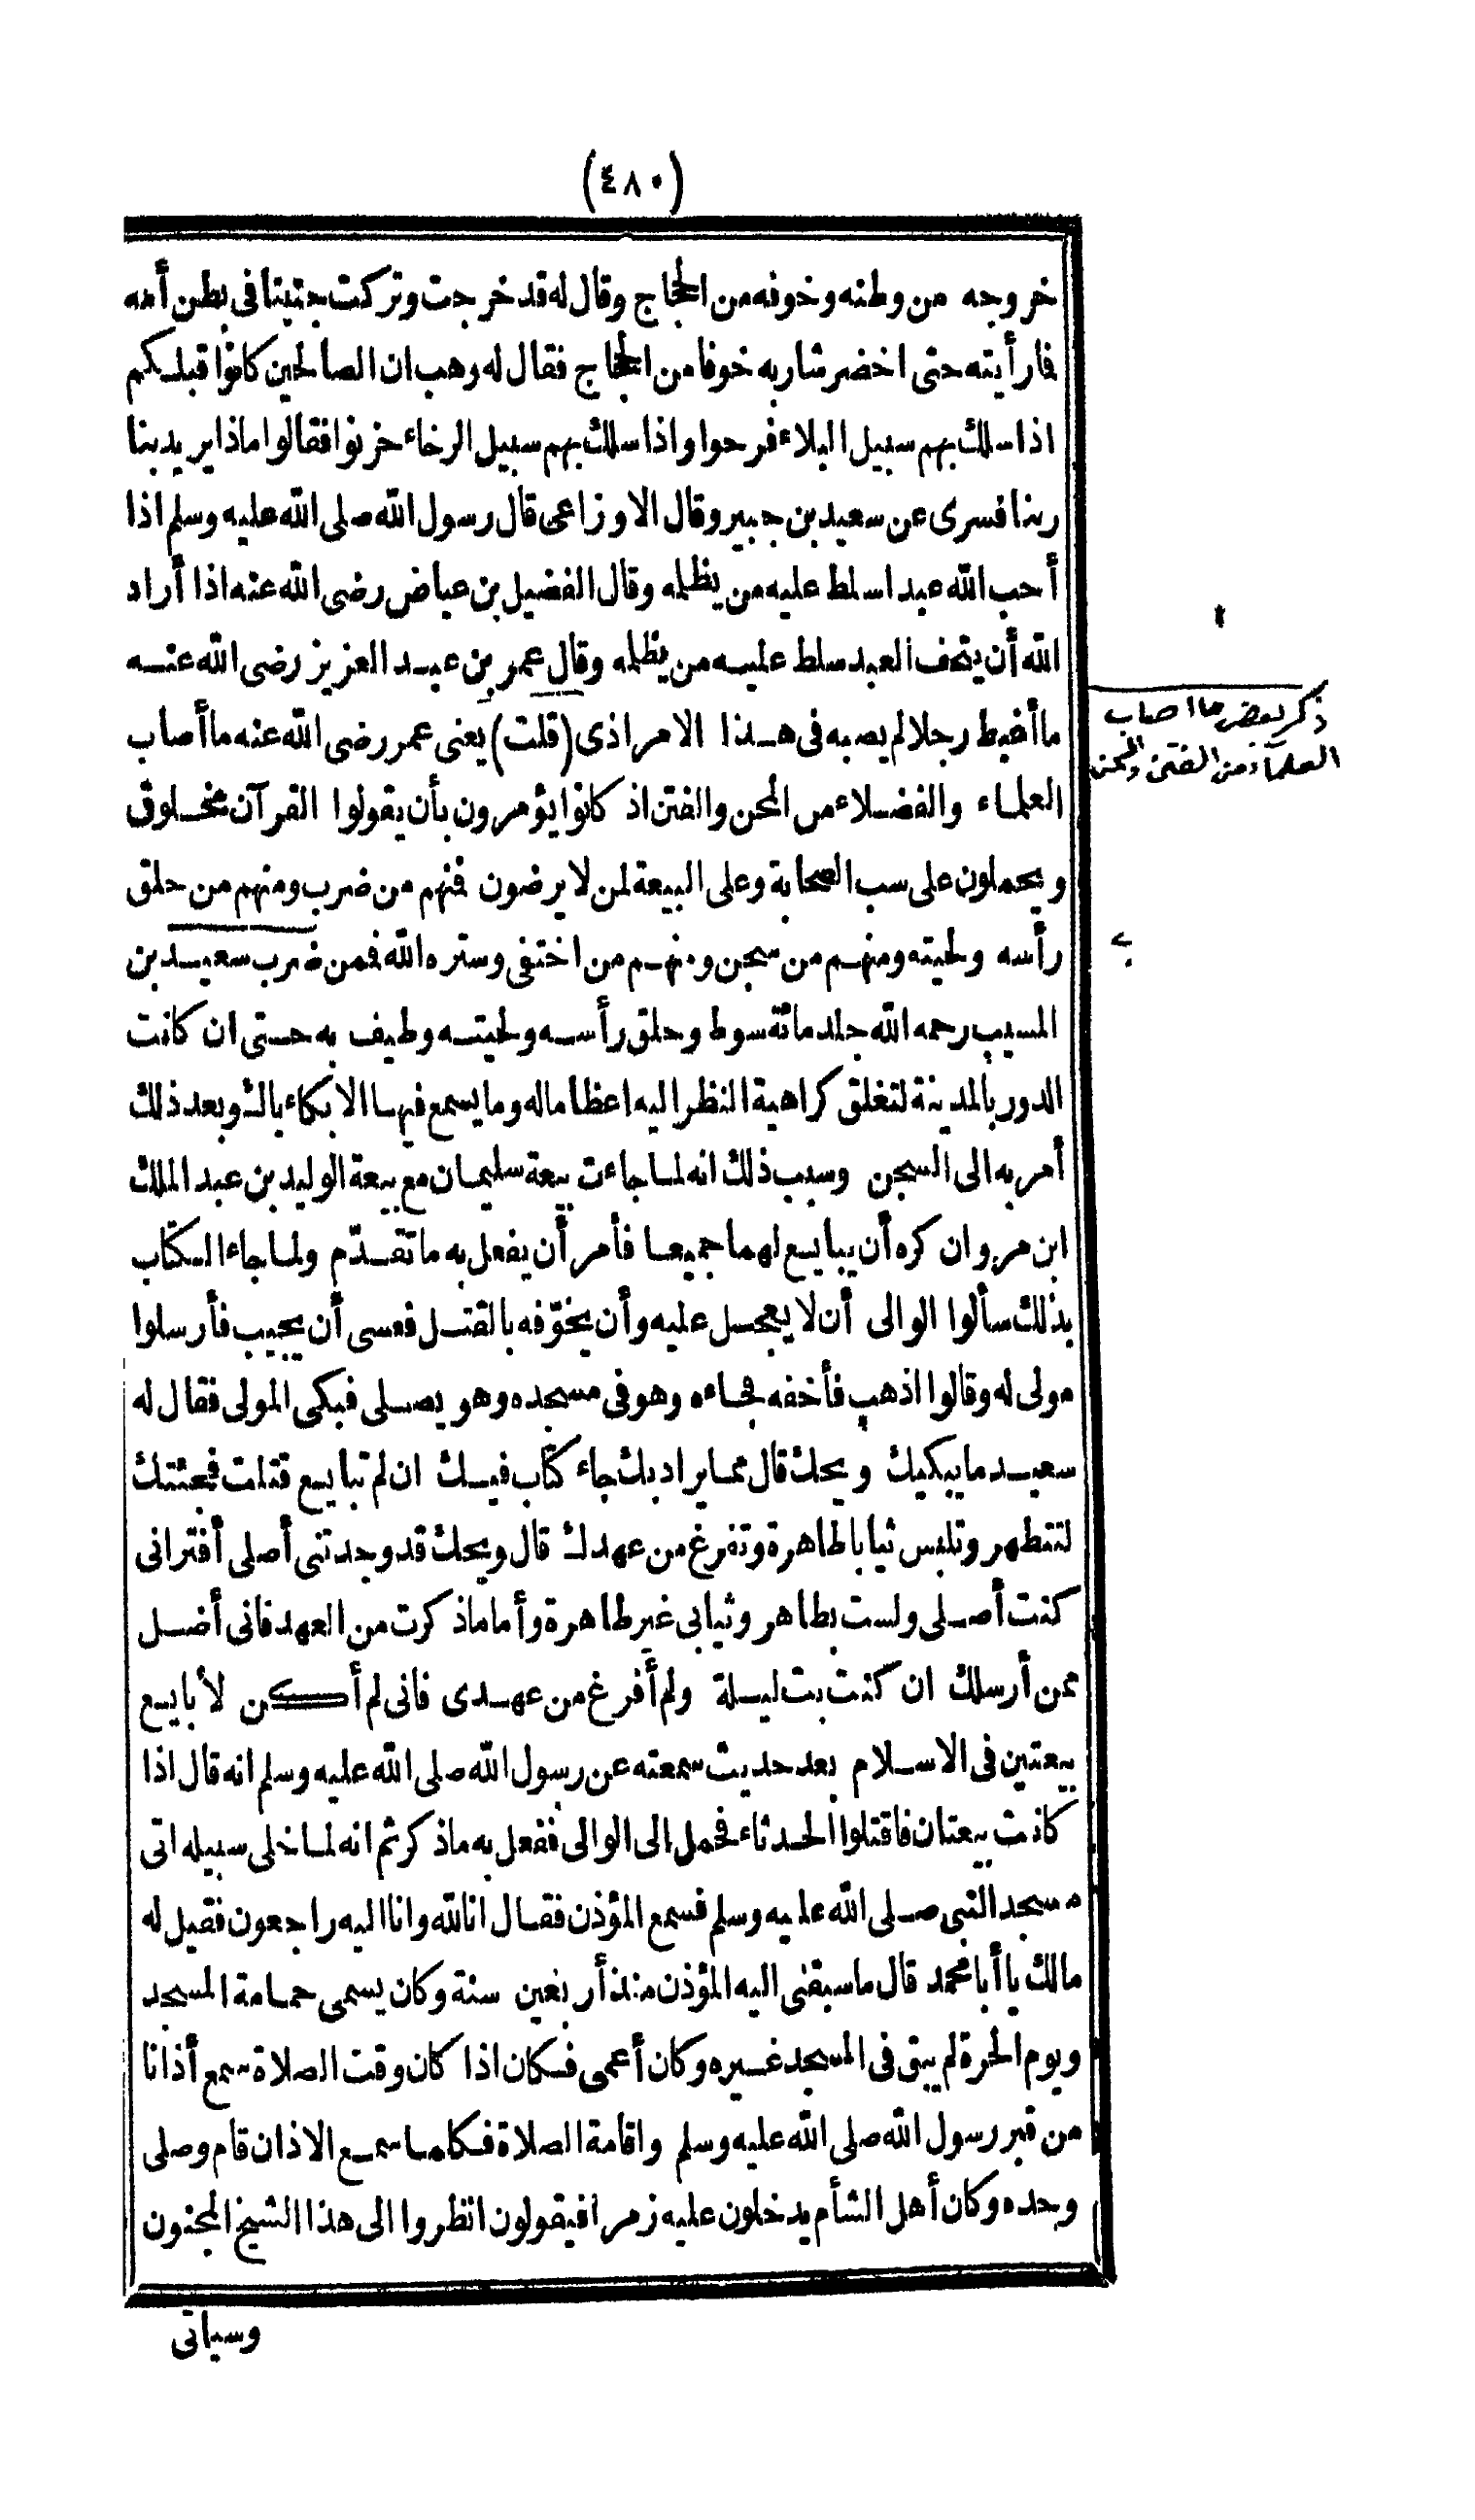 (٤٨٠)
خروجه من وطنه وخوفه من الحجاج وقال له قد خرجت وتركت جنينا فى بطن أمه
فارأيته حتى اخضر شاربه خوفا من الحجاج فقال له وهب ان الصالحين كانوا قبلكم
اذا سلك بهم سبيل البلاء فرحوا واذا سلك بهم سبيل الرخاء حزنوا فقالوا ماذا يريد بنا
ربنا فسرى عن سعيد بن جبير وقال الاوزاعى قال رسول الله صلى الله عليه وسلم اذا
أحب الله عبدا سلط عليه من يظلمه وقال الفضيل بن عياض رضى الله عنه اذا أراد
الله أن يتحف العبد سلط عليه من يظلمه وقال عمر بن عبد العزيز رضى الله عنه
ما أغبط رجلا لم يصبه فى هذا الامر اذى (قلت) يعنى عمر رضى الله عنه ما أصاب
ذكر بعض ما اصاب
العلماء من الفتن والمحن
العلماء والفضلاء من المحن والفتن اذ كانوا يؤمرون بأن يقولوا القرآن مخلوق
ويحملون على سب الصحابة وعلى البيعة لمن لا يرضون فمنهم من ضرب ومنهم من حلق
رأسه ولحيته ومنهم من سجن ومنهم من اختفى وستره الله فمن ضرب سعيد بن
المسيب رحمه الله جلد مائة سوط وحلق رأسه ولحيته وطيف به حتى ان كانت
الدور بالمدينة لتغلق كراهية النظر اليه اعظاما له وما يسمع فيها الا بكاء باك وبعد ذلك
أمر به الى السجن وسبب ذلك انه لما جاءت بيعة سليمان مع بيعة الوليد بن عبد الملك
ابن مروان كره أن يبايع لهما جميعا فأمر أن يفعل به ما تقدّم ولما جاء الكتاب
بذلك سألوا الوالى أن لا يعجل عليه وأن يخوّفه بالقتل فعسى أن يجيب فأرسلوا
مولى له وقالوا اذهب فأخفه فجاءه وهو فى مسجده وهو يصلى فبكى المولى فقال له
سعيد ما يبكيك ويحك قال مما يراد بك جاء كتاب فيك ان لم تبايع قتلت فجئتك
لتتطهر وتلبس ثيابا طاهرة وتفرغ من عهدك قال ويحك قد وجدتنى أصلى أفترانى
كنت أصلى ولست بطاهر وثيابى غير طاهرة وأما ماذكرت من العهد فانى أضل
ممن أرسلك ان كنت بت ليلة ولم أفرغ من عهدى فانى لم أكن لأبايع
بيعتين فى الاسلام بعد حديث سمعته عن رسول الله صلى الله عليه وسلم انه قال اذا
كانت بيعتان فاقتلوا الحدثاء فحمل الى الوالى ففعل به ماذكر ثم انه لما خلى سبيله اتى
مسجد النبى صلى الله عليه وسلم فسمع المؤذن فقال انا لله وانا اليه راجعون فقيل له
مالك يا أبا محمد قال ماسبقنى اليه المؤذن منذ أربعين سنة وكان يسمى حمامة المسجد
ويوم الحرة لم يبق فى المسجد غيره وكان أعمى فكان اذا كان وقت الصلاة سمع أذانا
من قبر رسول الله صلى الله عليه وسلم واقامة الصلاة فكلما سمع الاذان قام وصلى
وحده وكان أهل الشأم يدخلون عليه زمرا فيقولون انظروا الى هذا الشيخ المجنون
وسيأتى